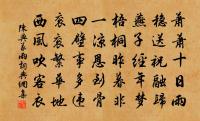 萧萧十日雨
稳送祝融归
燕子经年梦
梧桐昨暮非
一凉恩到骨
四壁事多违
衮衮繁华地
西风吹客衣
陈与义雨词典网集